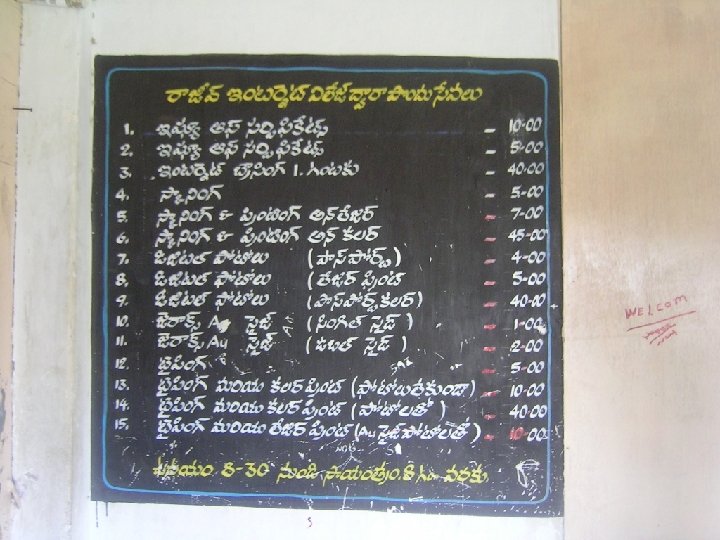 రాజీవ్ ఇంటర్నెట్ విలేజ్ ద్వారా పొందు సేవలు
1. ఇష్యూ ఆఫ్ సర్టిఫికేట్స్ - 10-00
2. ఇష్యూ ఆఫ్ సర్టిఫికేట్స్ - 5-00
3. ఇంటర్నెట్ బ్రౌసింగ్ 1. గంటకు - 40-00
4. స్కానింగ్ - 5-00
5. స్కానింగ్ & ప్రింటింగ్ ఆన్ లేజర్ - 7-00
6. స్కానింగ్ & ప్రింటింగ్ ఆన్ కలర్ - 45-00
7. డిజిటల్ ఫోటోలు (పాస్‌పోర్ట్) - 4-00
8. డిజిటల్ ఫోటోలు (లేజర్ ప్రింట్) - 5-00
9. డిజిటల్ ఫోటోలు (పాస్‌పోర్ట్ కలర్) - 40-00
10. జెరాక్స్ A4 సైజ్ (సింగిల్ సైడ్) - 1-00
11. జెరాక్స్ A4 సైజ్ (డబల్ సైడ్) - 2-00
12. టైపింగ్ - 5-00
13. టైపింగ్ మరియు కలర్ ప్రింట్ (ఫోటోలు లేకుండా) - 10-00
14. టైపింగ్ మరియు కలర్ ప్రింట్ (ఫోటోలతో) - 40-00
15. టైపింగ్ మరియు లేజర్ ప్రింట్ (A4 సైజ్ ఫోటోలతో) - 10-00
8-30 నుండి సాయంత్రం. 8 గం. వరకు
WELCOM